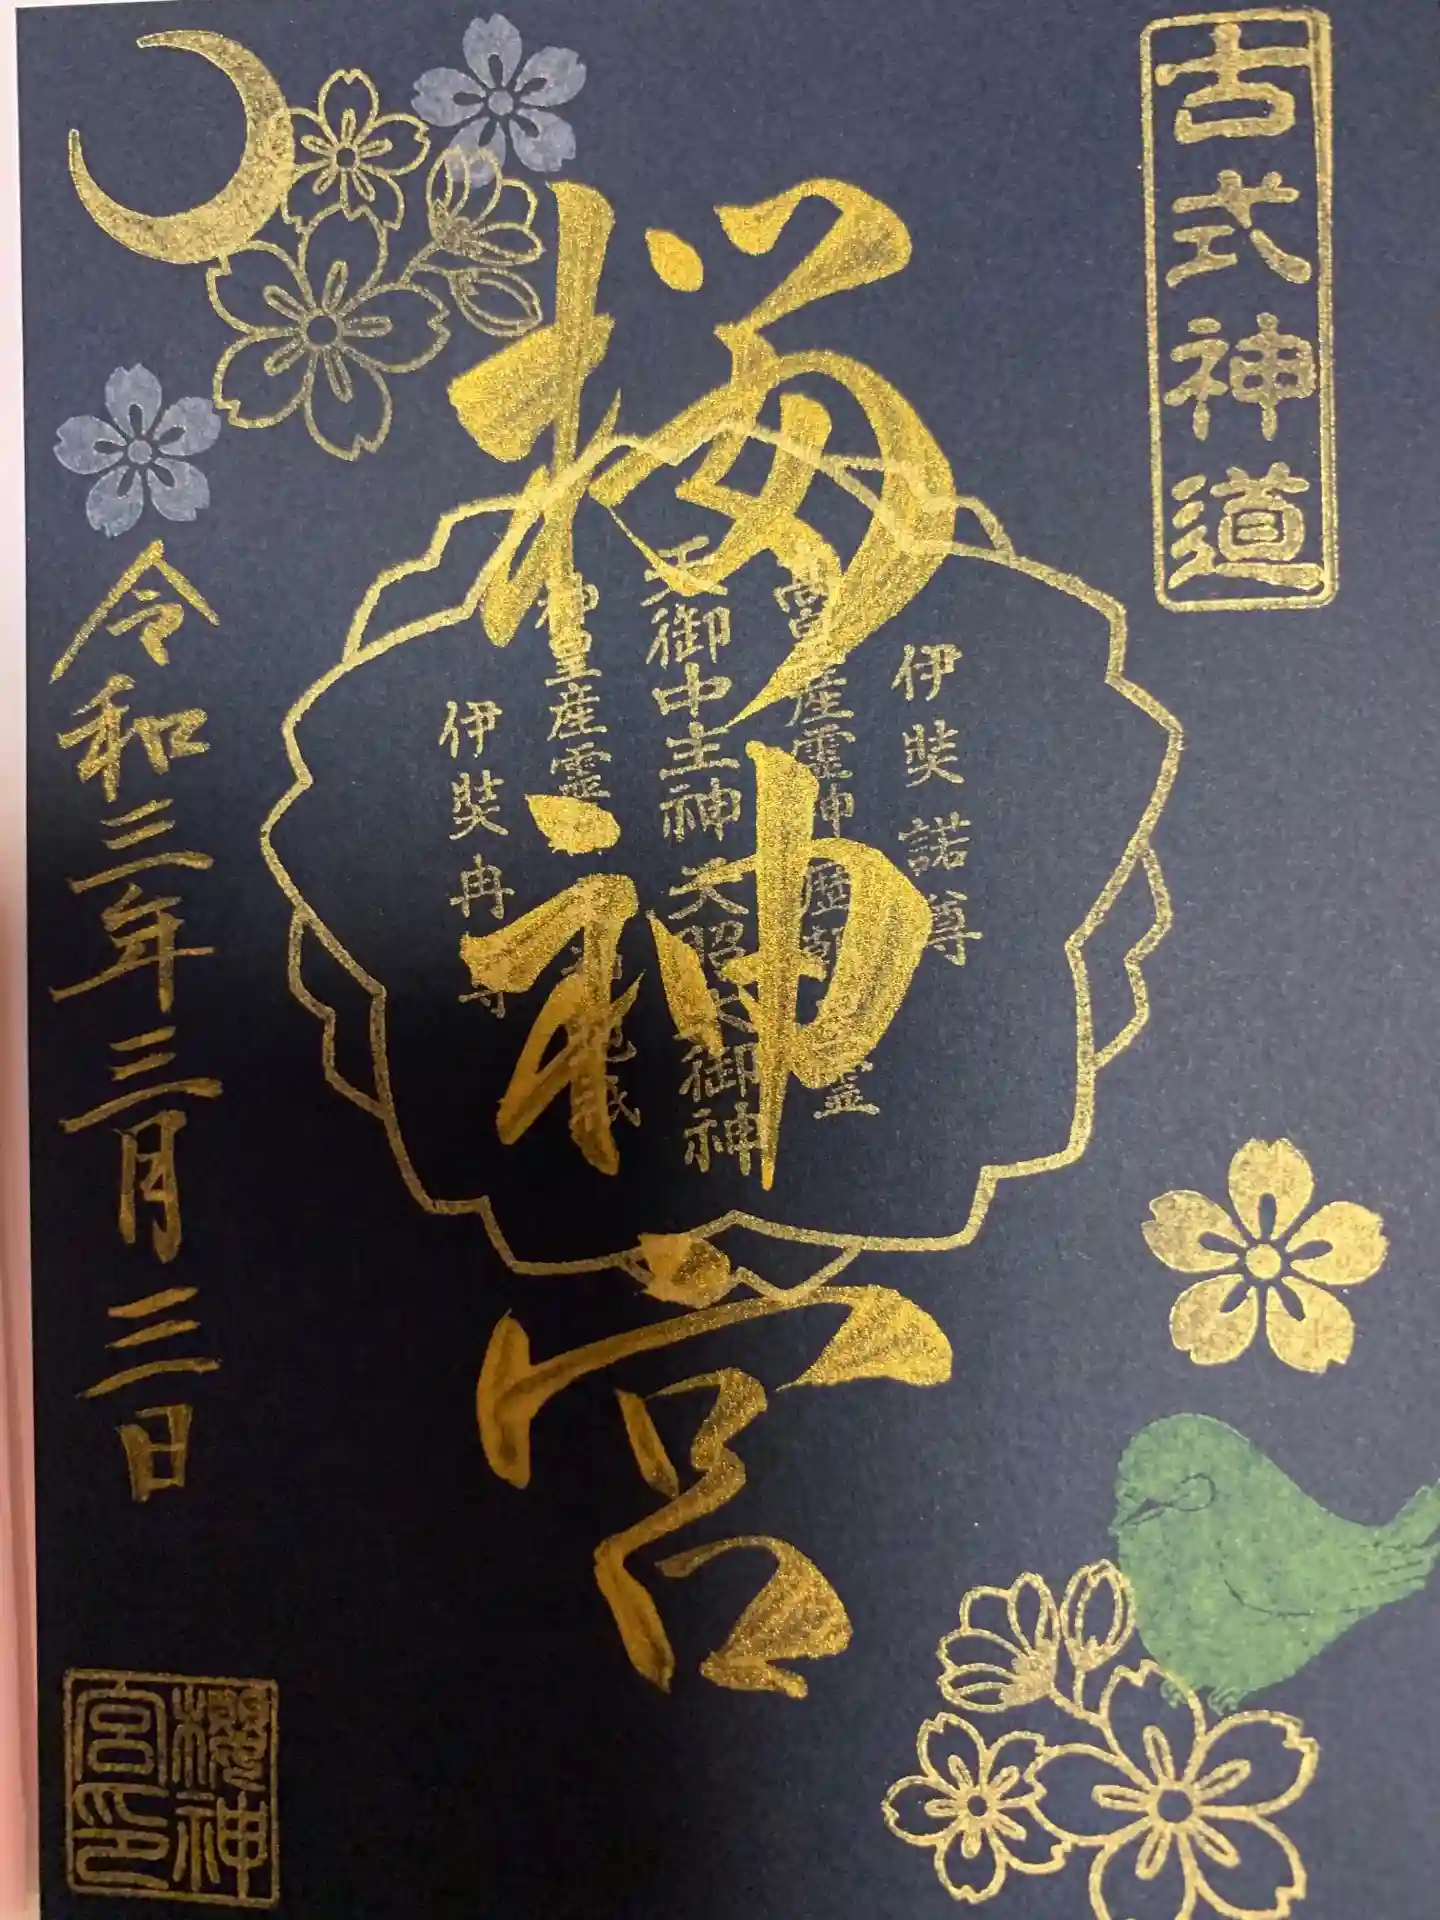 古式神道
桜神宮
伊奘諾尊
高皇産霊神 歴朝皇霊
天御中主神 天照大御神
神皇産霊
伊奘冉尊
令和三年三月三日
櫻神
宮印